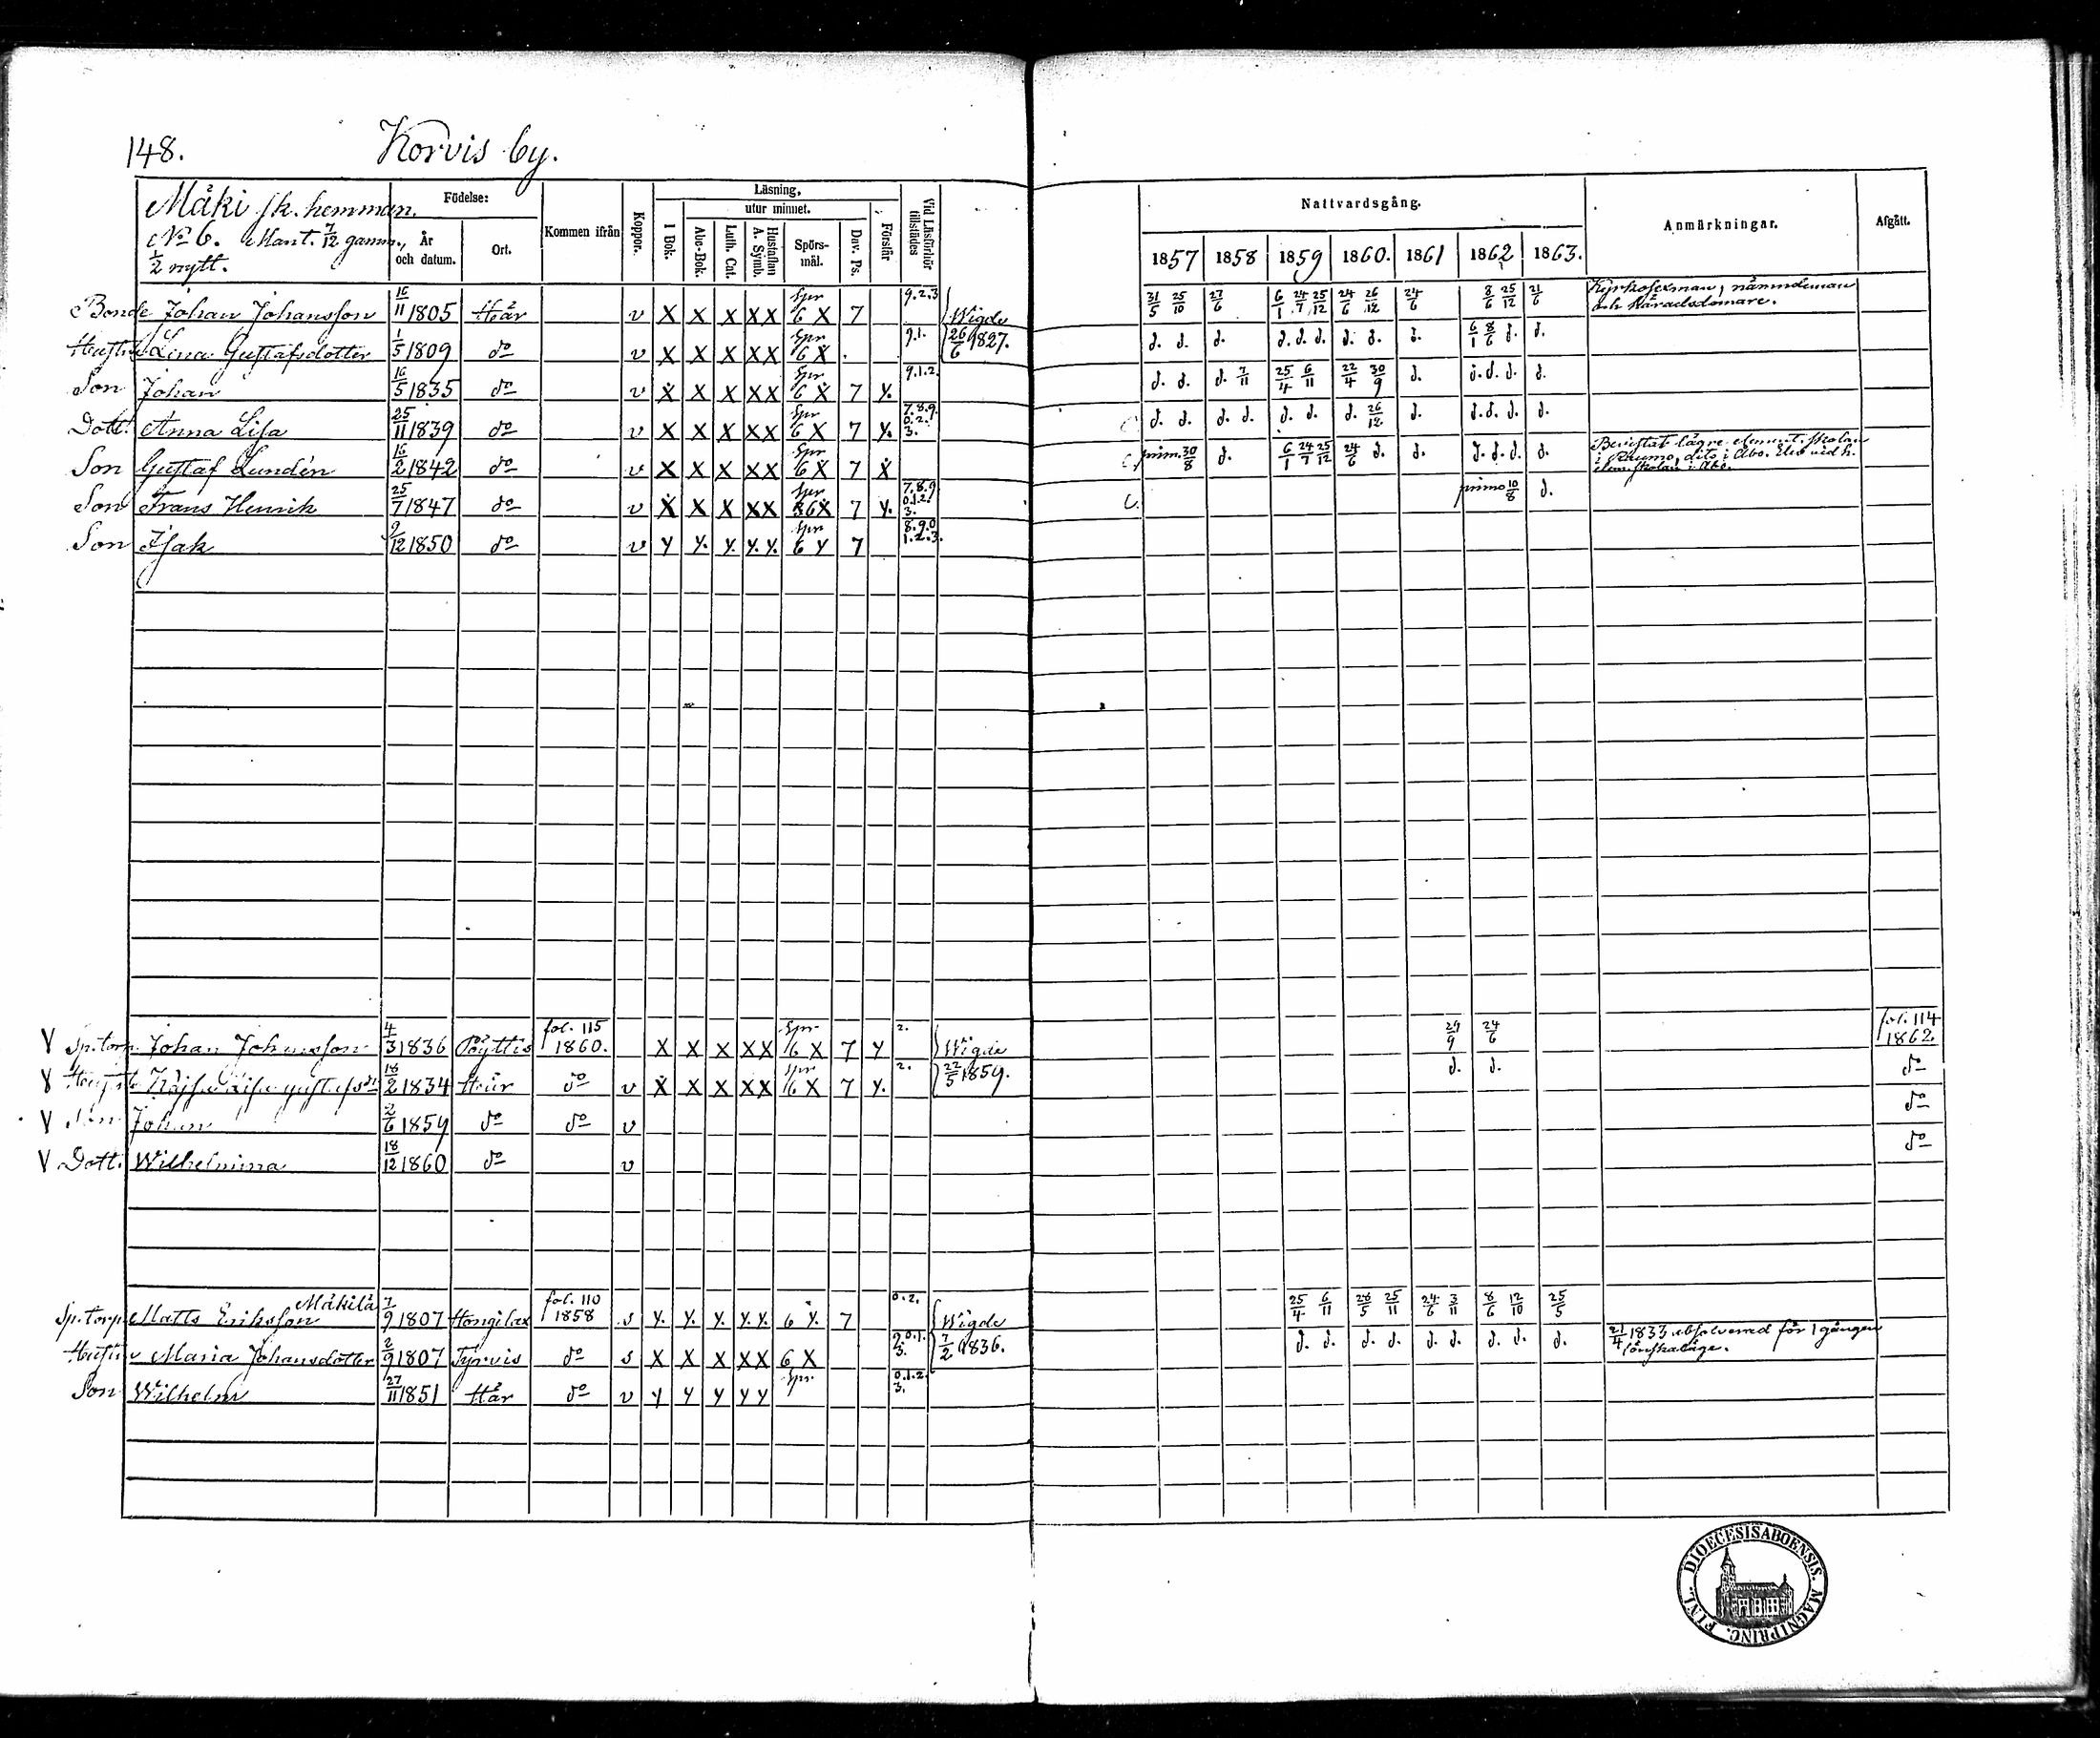 148. Korvis by.
Mäki sk. hemman.
No 6. Mant. 7/12 gamm.,
1/2 nytt.
Födelse:
År och datum.
Ort.
Kommen ifrån
Koppor.
Läsning,
I Bok.
utur minnet.
Abc-Bok.
Luth. Cat.
Hustaflan A. Symb.
Spörs-mål.
Dav. Ps.
Förstår
Vid Läsförhör tillstädes
Nattvardsgång.
1857 1858 1859 1860. 1861 1862 1863.
Anmärkningar.
Afgått.
Bonde Johan Johansson 16/11 1805 Här v X X X XX Spr 6 X 7 9.2.3 Wigde 31/5 25/10 27/6 6/1 24/7 25/12 24/6 26/12 24/6 8/6 25/12 21/6 Kyrkovesman, nämndeman och Häradsdomare.
Hustru Lena Gustafsdotter 1/5 1809 do v X X X XX Spr 6 X 9.1. 26/6 1827. d. d. d. d. d. d. d. d. d. 6/1 8/6 d. d.
Son Johan 16/5 1835 do v X X X XX Spr 6 X 7 Y. 9.1.2. d. d. d. 7/11 25/4 6/11 22/4 30/9 d. d. d. d. d.
Dott. Anna Lisa 25/11 1839 do v X X X XX Spr 6 X 7 Y. 7.8.9. 0.2. 3. d. d. d. d. d. d. d. 26/12. d. d. d. d. d.
Son Gustaf Lundén 16/2 1842 do v X X X XX Spr 6 X 7 X prim. 30/8 d. 6/1 24/7 25/12 24/6 d. d. d. d. d. d. Bevistat lägre element. skolan i Raumo, dito i Åbo. Elev vid h. elem. skolan i Åbo.
Son Frans Henrik 25/7 1847 do v X X X XX Spr 6X 7 Y. 7.8.9 0.1.2. 3. C. primo 10/8 d.
Son Isak 9/12 1850 do v Y Y. Y. Y. Y. Spr 6 Y 7 8.9.0 1.2.3.
V Sp.torp. Johan Johansson 4/3 1836 Pöyttis fol. 115 1860. X X X XX Spr 6 X 7 Y 2. Wigde 29/9 24/6 fol. 114 1862
V Hustr. Kajsa Lisa Gustafsdr 18/2 1834 Här do v X X X XX Spr 6 X 7 Y. 2. 22/5 1859. d. d. do
V Son Johan 2/6 1859 do do v do
V Dott. Wilhelmina 18/12 1860 do v do
Sp.torp. Matts Eriksson Mäkilä 7/9 1807 Hongilax fol. 110 1858 s Y. Y. Y. Y. Y. 6 Y. 7 0.2. Wigde 25/4 6/11 28/5 25/11 24/6 3/11 8/6 12/10 25/5
Hustru Maria Johansdotter 2/9 1807 Tyrvis do s X X X XX 6 X 9.0.1. 3. 7/2 1836. d. d. d. d. d. d. d. d. d. 21/4 1833 absolverad för 1 gången lönskaläge.
Son Wilhelm 27/11 1851 Här do v Y Y Y Y Y Spr 0.1.2. 3.
DIOECESIS ABOENSIS. MAGNI PRINC. FINL.